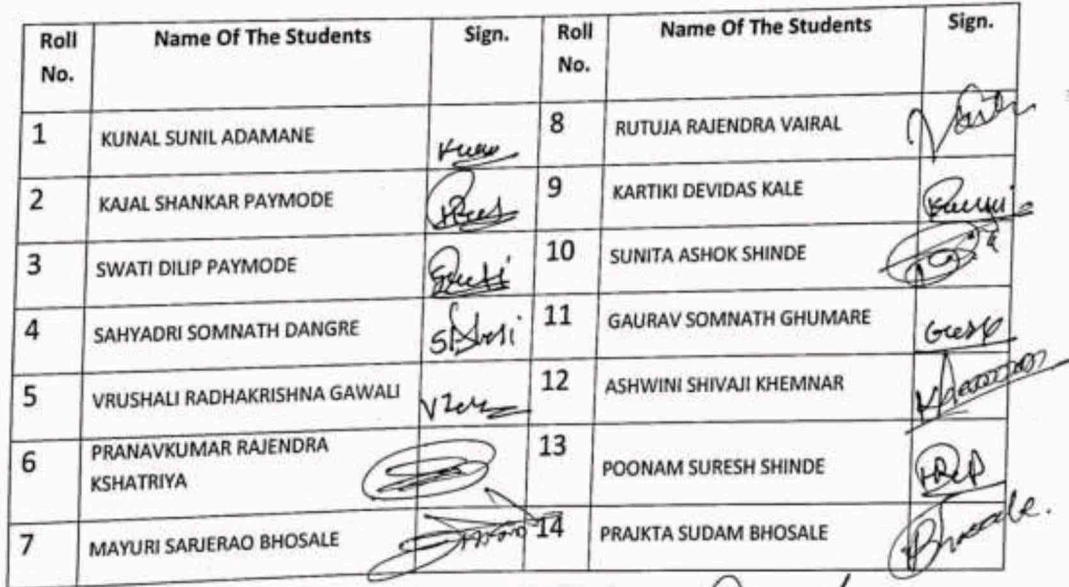 Roll No. Name Of The Students Sign. Roll No. Name Of The Students Sign.
1 KUNAL SUNIL ADAMANE 8 RUTUJA RAJENDRA VAIRAL
2 KAJAL SHANKAR PAYMODE 9 KARTIKI DEVIDAS KALE
3 SWATI DILIP PAYMODE 10 SUNITA ASHOK SHINDE
4 SAHYADRI SOMNATH DANGRE 11 GAURAV SOMNATH GHUMARE
5 VRUSHALI RADHAKRISHNA GAWALI 12 ASHWINI SHIVAJI KHEMNAR
6 PRANAVKUMAR RAJENDRA KSHATRIYA 13 POONAM SURESH SHINDE
7 MAYURI SARJERAO BHOSALE 14 PRAJKTA SUDAM BHOSALE Bhosale.